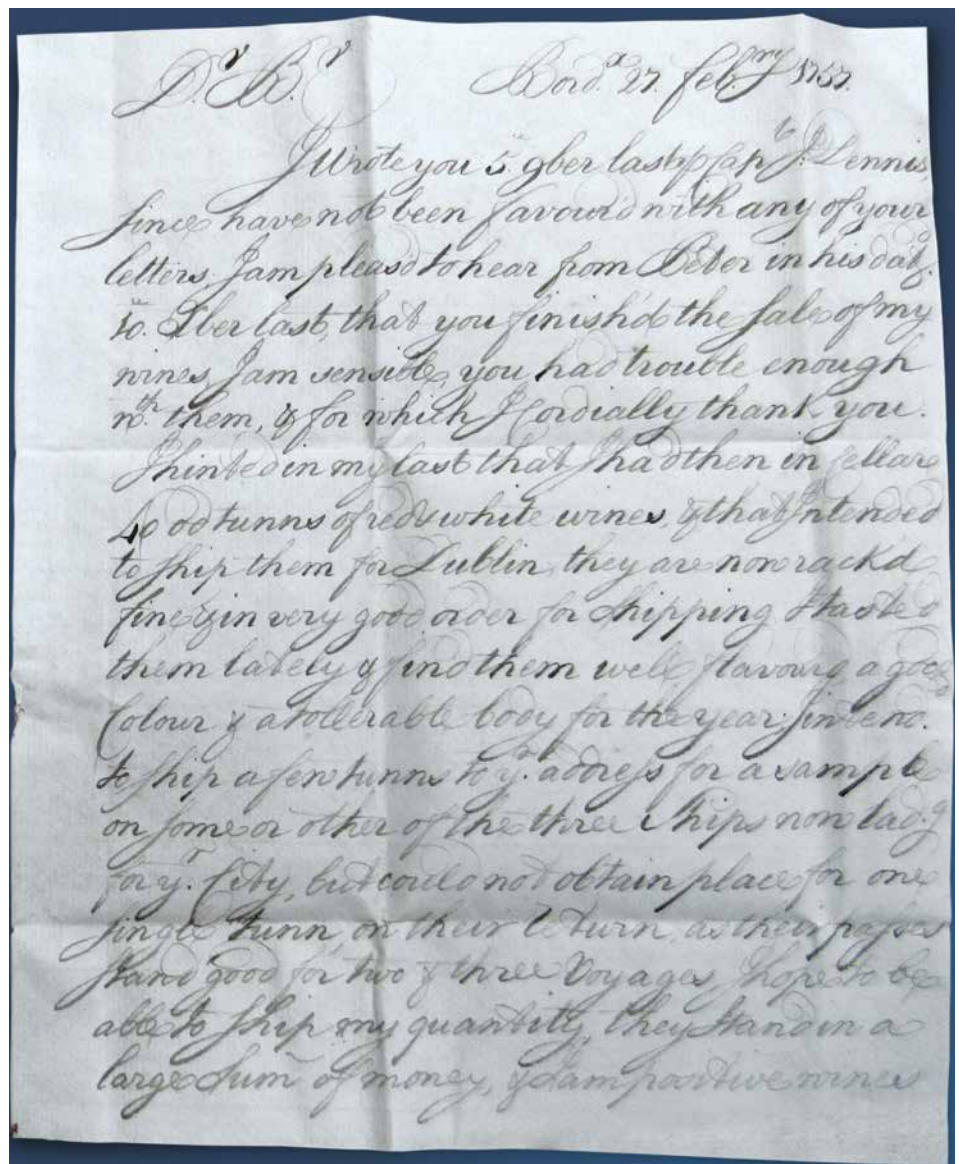 Dr. Br. Bordx. 27. febry. 1757.
I Wrote you 5. 9ber last p Capt. J. Dennis,
since have not been favour'd with any of your
letters, I am pleas'd to hear from Peter in his dat'd.
10. Xber last, that you finish'd the sale of my
wines, I am sensible, you had trouble enough
wth. them, & for which I Cordially thank you.
I hinted in my last that I had then in Cellare
40 od tunns of red & white wines, & that I Intended
to ship them for Dublin, they are now rack'd
fine & in very good order for shipping I tasted
them lately & find them well flavourd a good
Colour & a tollerable body for the year; I intend.
to ship a few tunns to yr. address for a sample
on some or other of the three ships now ladg.
for yr. City, but could not obtain place for one
single Tunn, on their return, as their passes
stand good for two & three Voyages, I hope to be
able to ship my quantity, they stand in a
large Sum of money, & I am positive wines